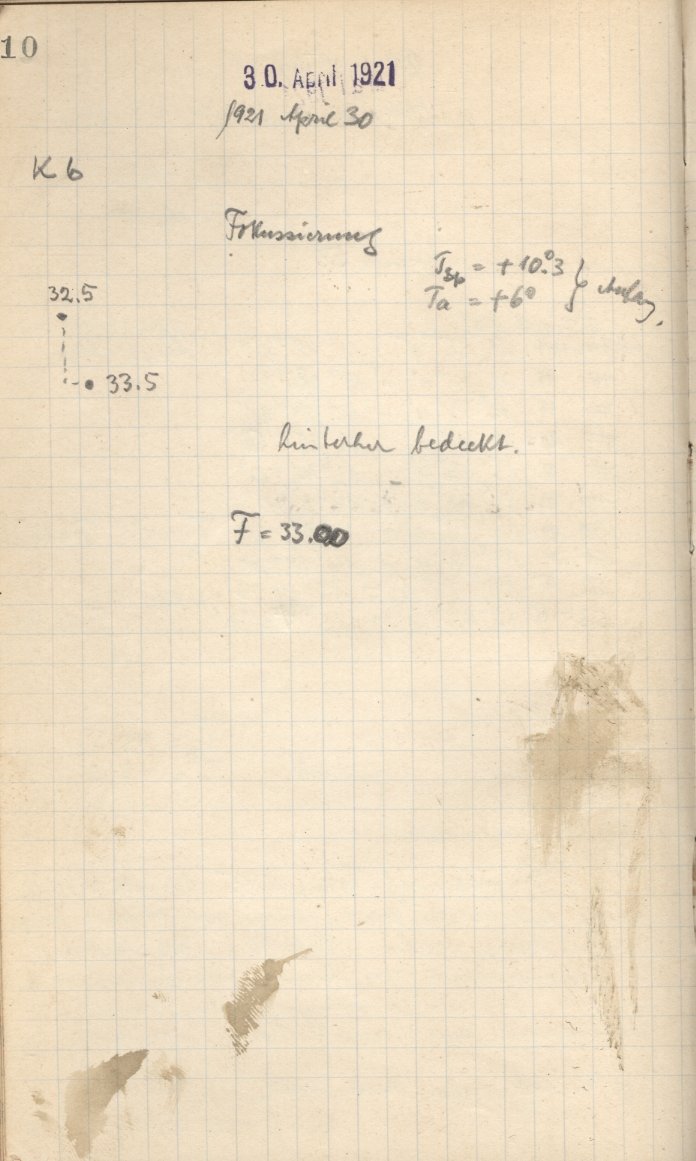 10
30. April 1921
1921 April 30
K 6
Fokussierung
T_Sp = + 10°.3
Ta = + 6° } Anfang.
32.5
33.5
hinterher bedeckt.
F = 33.00